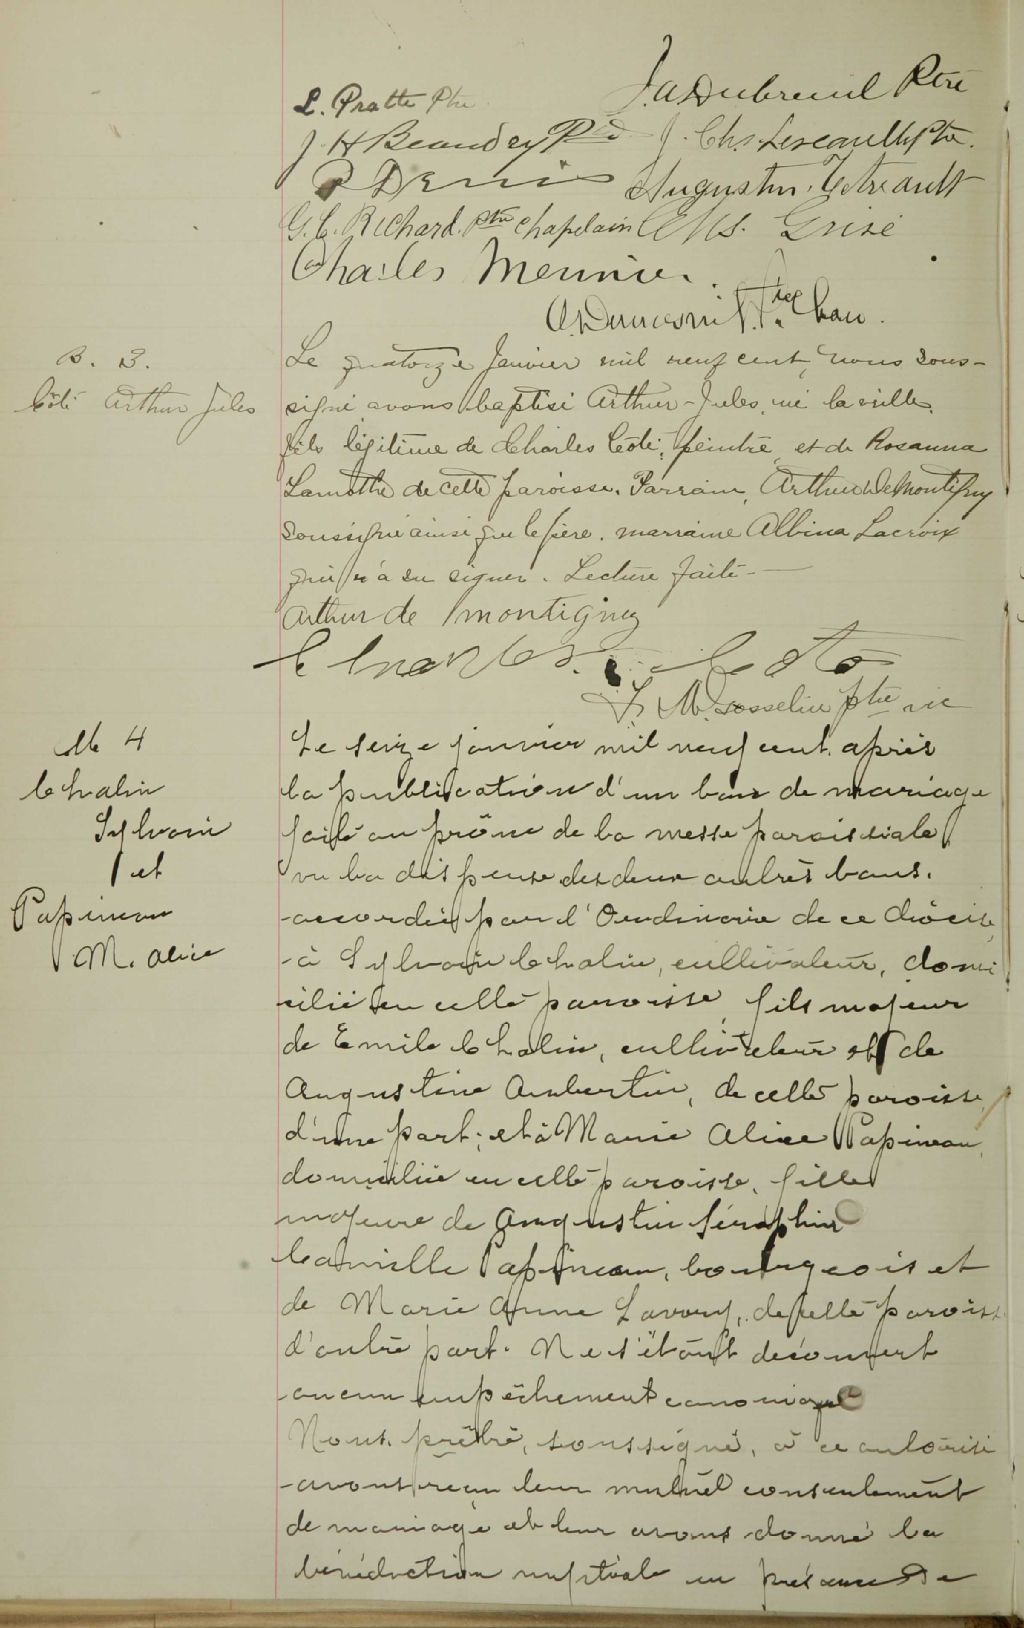 L. Pratte Ptre
J. A. Dubreuil Ptre
J. H. Beaudry Ptre J. Chs. Lescault Ptre.
P Denis Augustin. Tetreault
G. C. Richard. ptre chapelain Ms. Grisé
Charles Meunier.
Ptre Chan.
B. 3.
Côté Arthur Jules
Le quatorze Janvier mil neuf cent, nous sous-
signé avons baptisé Arthur-Jules, né la veille,
fils légitime de Charles Côté, peintre, et de Rosanna
Lamothe de cette paroisse. Parrain, Arthur de Montigny
soussigné ainsi que le père. marraine Albina Lacroix
qui n'a su signer. Lecture faite -
Arthur de Montigny
Charles Coté
Gosselin ptre vic
M 4
Chalin
Sylvain
et
Papineau
M. Alice
Le seize janvier mil neuf cent, après
la publication d'un ban de mariage
faite au prône de la messe paroissiale
vu la dispense des deux autres bans.
accordée par l'Ordinaire de ce diocèse,
à Sylvain Chalin, cultivateur, domi
cilié en cette paroisse, fils majeur
de Emile Chalin, cultivateur et de
Augustine Aubertin, de cette paroisse
d'une part; et à Marie Alice Papineau,
domiciliée en cette paroisse, fille
majeure de Augustin Séraphin
Camille Papineau, bourgeois et
de Marie Anne Savory, de cette paroisse
d'autre part. Ne s'étant découvert
aucun empêchement canonique
Nous, prêtre, soussigné, à ce autorisé
avons reçu leur mutuel consentement
de mariage et leur avons donné la
bénédiction nuptiale en présence de